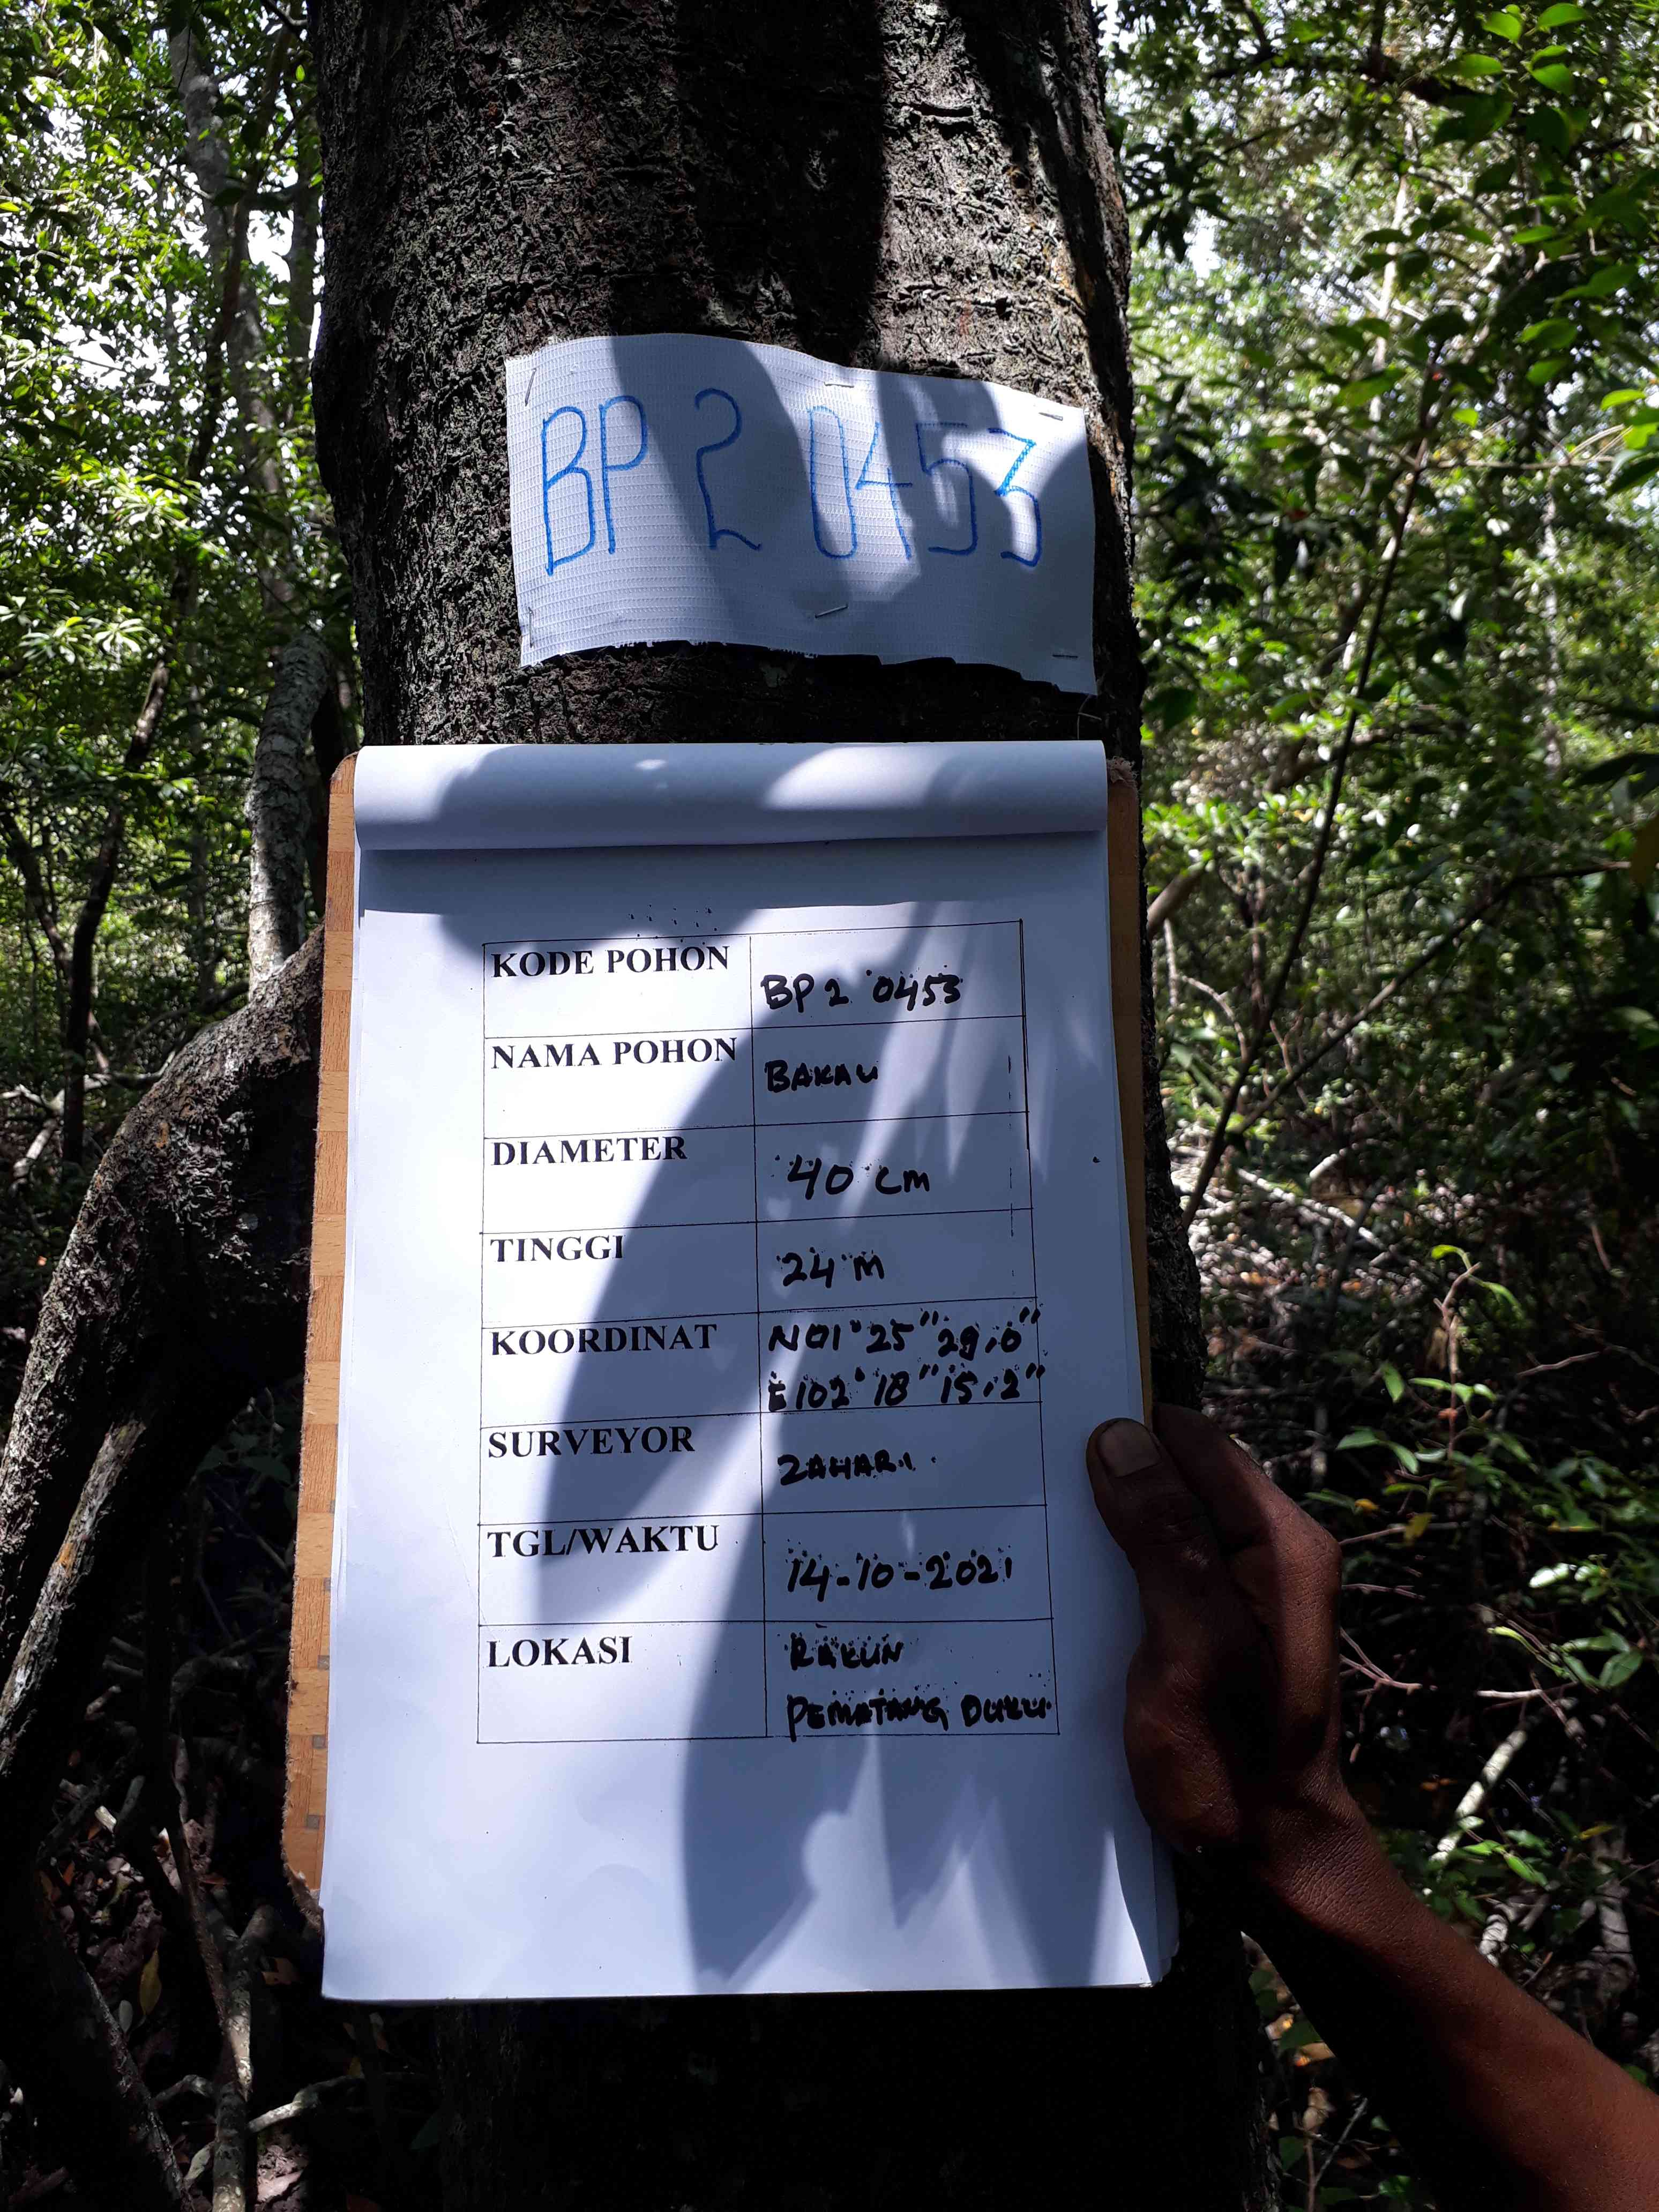 BP 2 0453
KODE POHON BP 2 0453
NAMA POHON BAKAU
DIAMETER 40 cm
TINGGI 24 M
KOORDINAT N01° 25" 29,0"
E102° 18" 15,2"
SURVEYOR ZAHARI
TGL/WAKTU 14-10-2021
LOKASI
PEMATANG DUKU